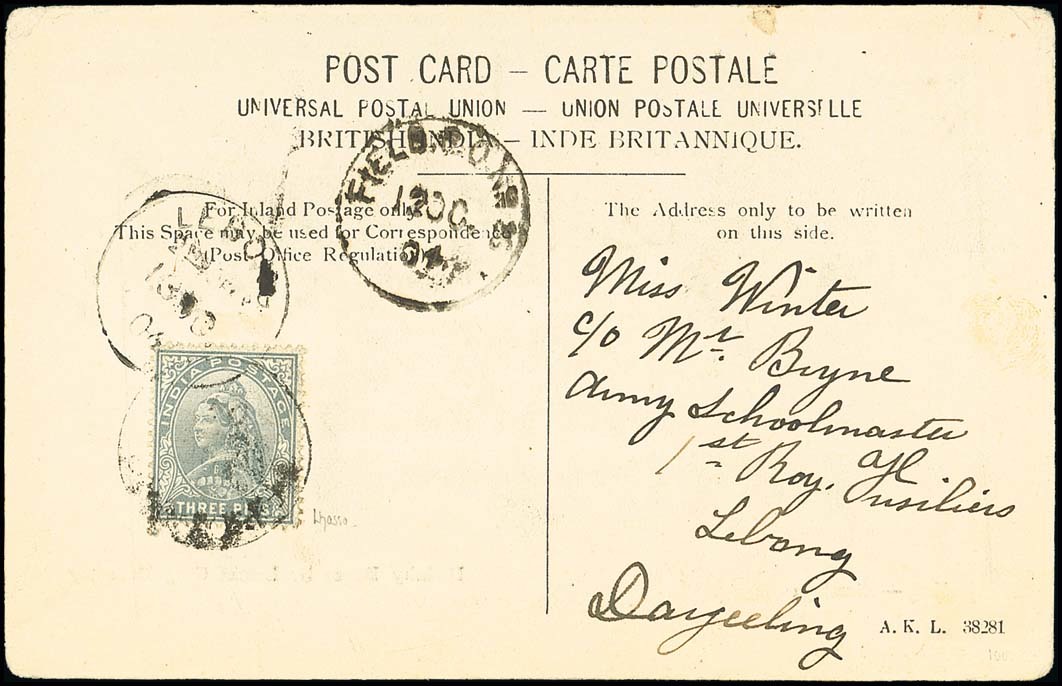 POST CARD — CARTE POSTALE
UNIVERSAL POSTAL UNION — UNION POSTALE UNIVERSELLE
BRITISH INDIA — INDE BRITANNIQUE.
For Inland Postage only
This Space may be used for Correspondence
(Post Office Regulation)
FIELD P.O. No
12 OC
04
LEBONG
04
INDIA POSTAGE
THREE PIES
Lhassa
The Address only to be written
on this side.
Miss Winter
c/o Mr. Bryne
Army Schoolmaster
1st Roy. Fusiliers
Lebong
Darjeeling
A. K. L. 38281
100